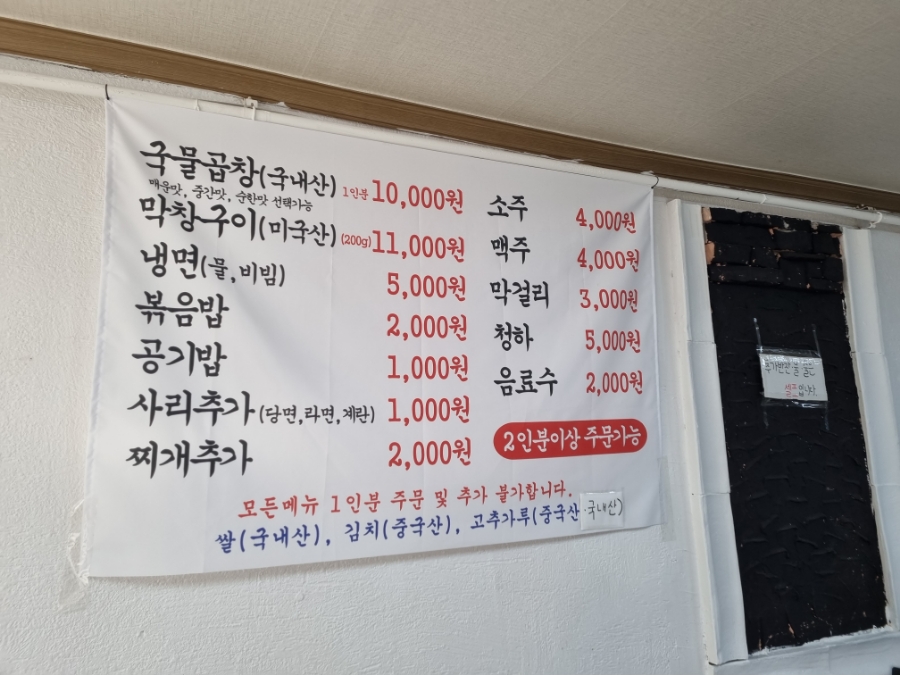 국물곱창(국내산) 1인분 10,000원
매운맛, 중간맛, 순한맛 선택가능
막창구이(미국산) (200g) 11,000원
냉면(물,비빔) 5,000원
볶음밥 2,000원
공기밥 1,000원
사리추가(당면,라면,계란) 1,000원
찌개추가 2,000원
소주 4,000원
맥주 4,000원
막걸리 3,000원
청하 5,000원
음료수 2,000원
2인분이상 주문가능
모든메뉴 1인분 주문 및 추가 불가합니다.
쌀(국내산), 김치(중국산), 고추가루(중국산·국내산)
추가반찬 물 술은
셀프입니다.